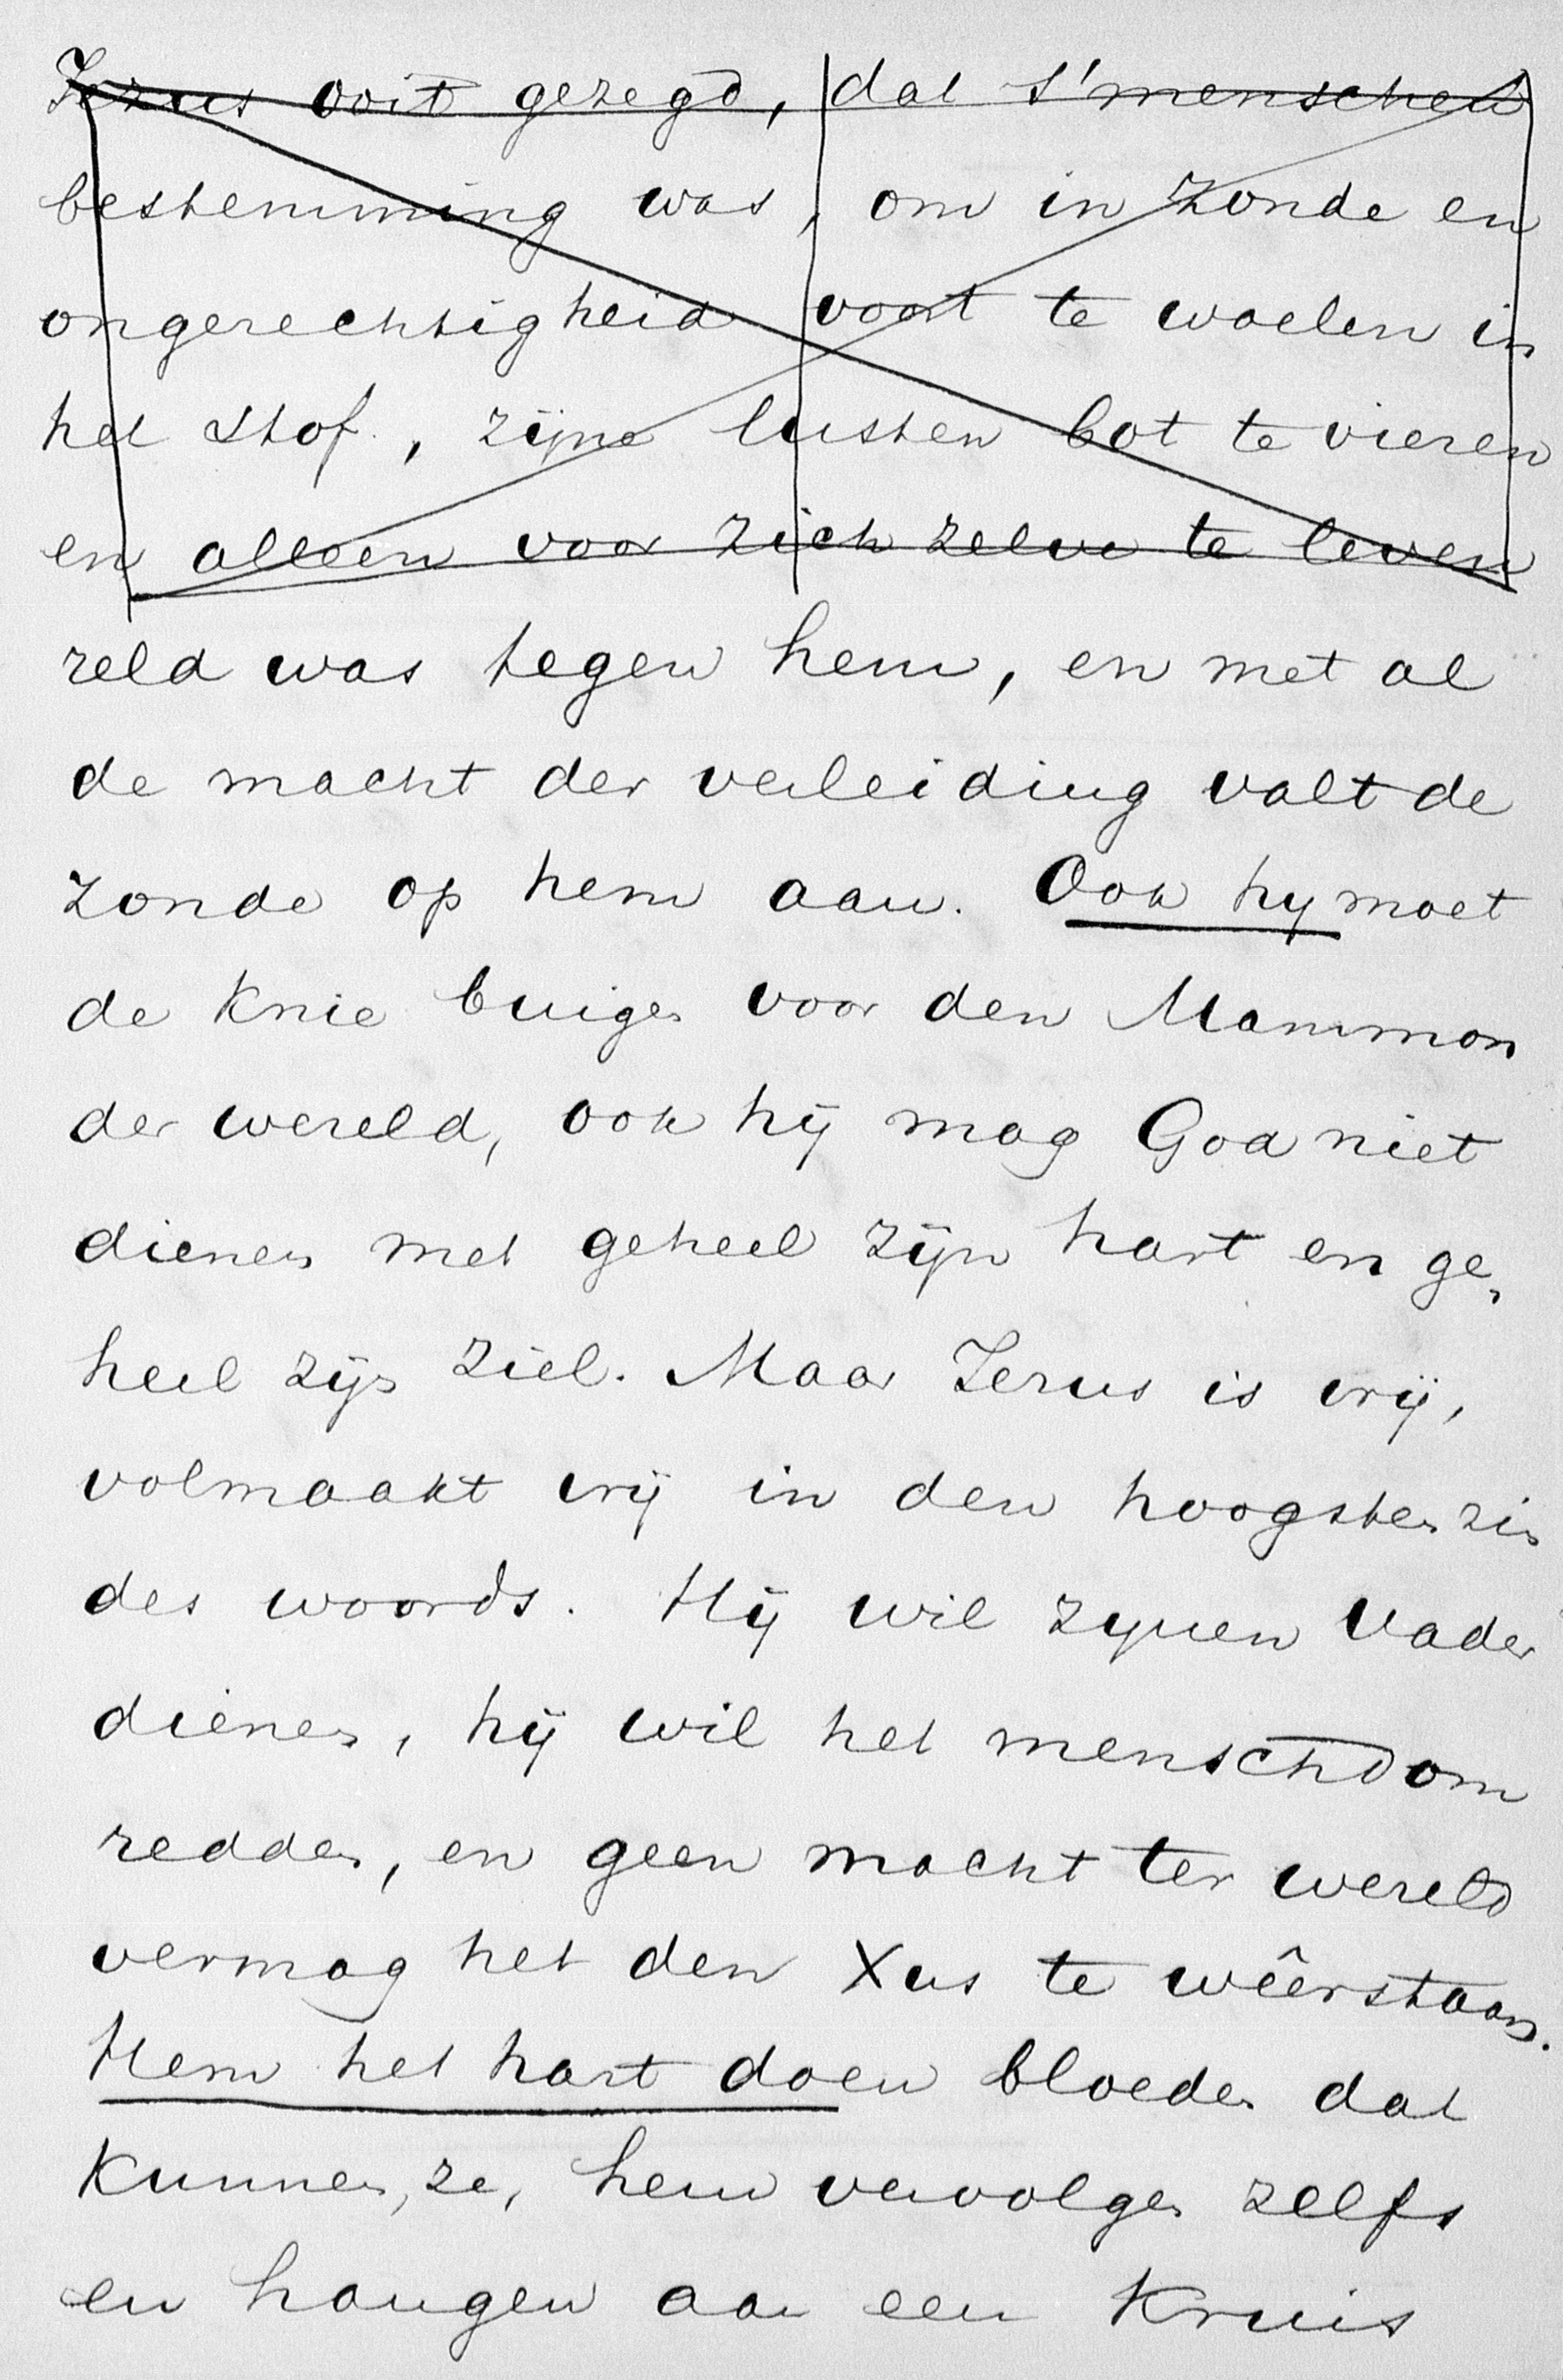 Jezus ooit gezegd, dat s'menschen
bestemming was, om in zonde en
ongerechtigheid voort te woelen in
het stof, zijne lusten bot te vieren
en alleen voor zich zelve te leven
reld was tegen hem, en met al
de macht der verleiding valt de
zonde op hem aan. Ook hy moet
de knie buigen voor den Mammon
der wereld, ook hij mag God niet
dienen met geheel zijn hart en ge„
heel zijn ziel. Maar Jezus is vrij,
volmaakt vrij in den hoogsten zin
des woords. Hij wil zynen Vader
dienen, hij wil het menschdom
redden, en geen macht ter wereld
vermag het den Xus te wêerstaan.
Hem het hart doen bloeden dat
kunnen, ze, hem vervolgen zelfs
en hangen aan een Kruis